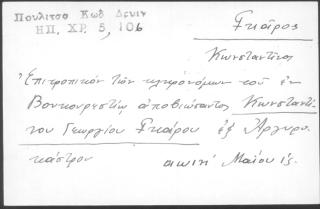 Πουλίτσα Κωδ Δενιν
ΗΠ. ΧΡ. 5, 106
Γκαῖρος
Κωνσταντῖνος
Ἐπιτροπικὸν τῶν κληρονόμων τοῦ ἐν
Βουκουρεστίῳ ἀποβιώσαντος Κωνσταντί-
νου Γεωργίου Γκαίρου ἐξ Ἀργυρο-
κάστρου
Μαΐου